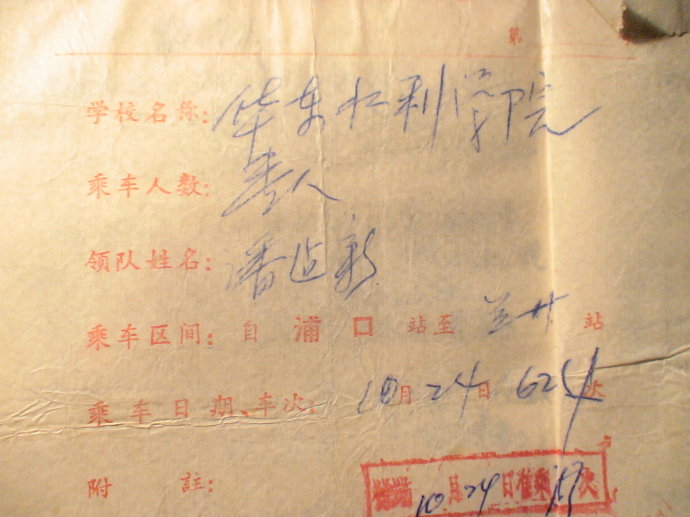 第
学校名称：华东水利学院
乘车人数：壹人
领队姓名：潘追新
乘车区间：自浦口站至兰州站
乘车日期、车次：10月24日 624次
附註：
10月24日准乘 次